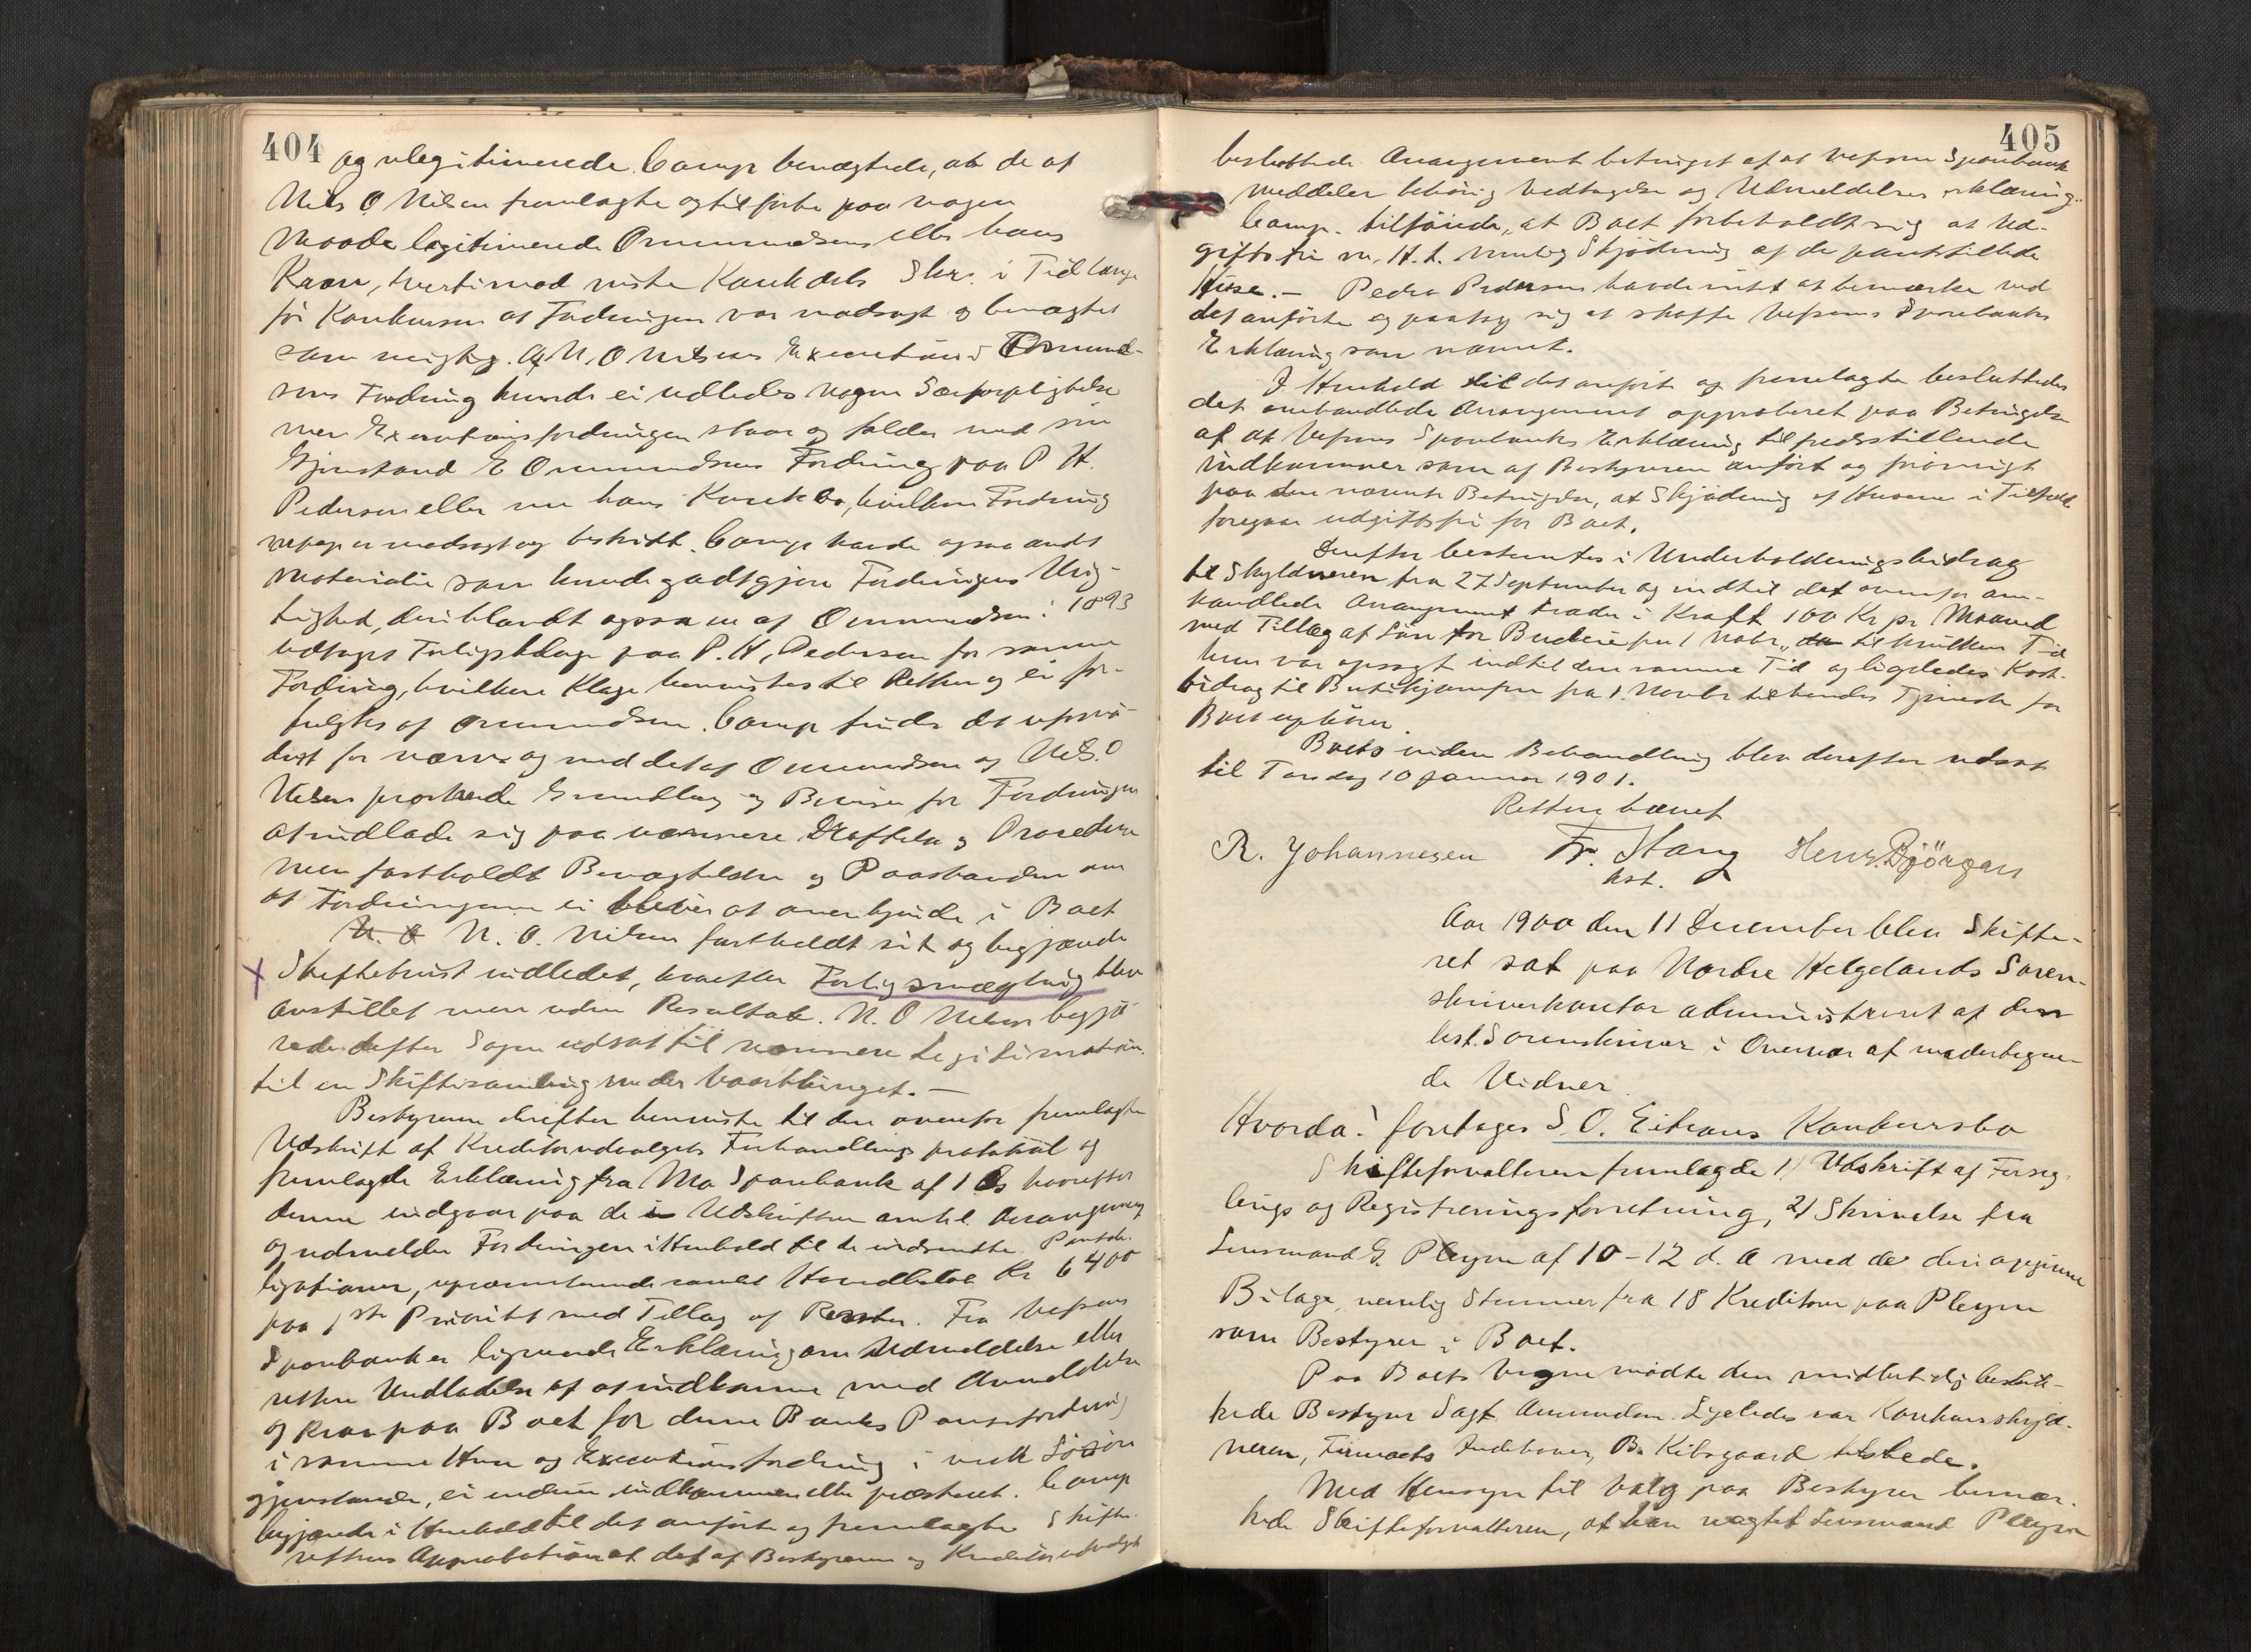 404
og ulegitimerede. Comp benægtede, at de af
Nils O Nilsen fremlagte og tilførte paa nogen
Maade legitimerede Ommundsens eller hans
Krav, tvertimod viste Konkdebs Skr. i Tid længe
før Konkursen at Fordringen var modsagt og benægtet
som urigtig. Af N. O Nilsens Execution i Ommund-
sens Fordring kunde ei udledes nogen Særforpligtelse
men Executionsfordringen staar og falder med sin
Gjenstand E Ommundsens Fordring paa P H.
Pedersen eller nu hans Konkbo, hvilken Fordring
er modsagt og bestridt. Comp havde ogsaa andet
Materiale som kunde godtgjøre Fordringens Urig-
tighed, deriblandt ogsaa en af Ommundsen i 1893
udtaget Forligsklage paa P. H. Pedersen for samme
Fordring, hvilken Klage henvistes til Retten og ei for-
fulgtes af Ommundsen. Comp finder det ufornø-
dent for nærv. og med det af Ommundsen og Nils O
Nilsen Grundlag og Beviser for Fordringen
at indlade sig paa nærmere Drøftelse og Procedure
men fastholdt Benægtelsen og Paastanden om
at Fordringerne ei bliver at anerkjende i Boet
N. O. Nilsen fastholdt sit og begjærede
Skiftetvist indledet, hvorefter Forligsmægling blev
anstillet men uden Resultat. N. O Nilsen begjæ-
rede derefter Sagen udsat til nærmere Legitimation
til en Skiftesamling under Vaarthinget. —
Bestyreren derefter henviste til den ovenfor fremlagte
Udskrift af Kreditorudvalgets Forhandlingsprotokol og
fremlagde Erklæring fra Mo Sparebank af 1 ds hvorefter
denne indgaar paa de i Udskriften omhl. Arrangement
og udmelder Fordringen i Henhold til de indsendte Pantob-
ligationer, repræsenterende samlet Hovedbeløb Kr 6400
paa 1ste Prioritet med Tillæg af Renter. Fra Vefsens
Sparebank er lignende Erklæring om Udmeldelse eller
rettere Undladelse af at indkomme med Anmeldelse
og Krav paa Boet for denne Banks Pantefordring
i samme Huse og Executionsfordring i endel Løsøre
gjenstande, ei endnu indkommen eller præsteret. Comp
begjærede i Henhold til det anførte og fremlagte Skifte-
rettens Approbation at det af Bestyreren og Kreditorudvalget
405
besluttede Arrangement betinget af at Vefsens Sparebank
meddeler behørig Vedtagelse og Udmeldelses erklæring.
Comp. tilføiede, at Boet forbeholdt sig at Ud-
giftsfri m. H. t. mulig Skjødning af de pantstillede
Huse. — Peder Pedersen havde intet at bemærke ved
det anførte og paatog sig at skaffe Vefsens Sparebanks
Erklæring som nævnt.
I Henhold til det anført og fremlagte besluttedes
det omhandlede Arrangement approberet paa Betingelse
af at Vefsens Sparebanks Erklæring tilfredsstillende
indkommer som af Bestyreren anført og forøvrigt
paa den nævnte Betingelse, at Skjødning af Husene i Tilfælde
foregaar udgiftsfri for Boet.
Derefter bestemtes i Underholdningsbidrag
til Skyldneren fra 27 September og indtil det ovenfor om-
handlede Arrangement træder i Kraft 100 Kr pr Maaned
med Tillæg af Løn for Budeie fra 1 Novbr, til hvilken Tid
hun var opsagt indtil den samme Tid og ligeledes Kost-
bidrag til Butikjomfru fra 1. Novbr til hendes Tjeneste for
Boet ophører.
Boets videre Behandling blev derefter udsat
til Torsdag 10 Januar 1901.
Retten hævet
R. Johannesen Fr. Stang Henr. Bjørgan
kst.
Aar 1900 den 11 December blev Skifte-
ret sat paa Nordre Helgelands Soren-
skriverkontor administreret af den
kst. Sorenskriver i Overvær af undertegne-
de Vidner
Hvorda: foretoges S. O. Eitrans Konkursbo
Skifteforvalteren fremlagde 1) Udskrift af Forseg-
lings og Registreringsforretning, 2) Skrivelse fra
Lensmand E. Pleym af 10-12 d. A med de deri opgivne
Bilage, nemlig Stemmer fra 18 Kreditorer paa Pleym
som Bestyrer i Boet.
Paa Boets Vegne mødte den midlertidig beskik-
kede Bestyrer Sagf. Amundsen. Ligeledes var Konkursskyld-
neren, Firmaets Indehaver, B. Kibsgaard tilstede.
Med Hensyn til Valg paa Bestyrer bemær-
kede Skifteforvalteren, at han uagtet Lensmand Pleym